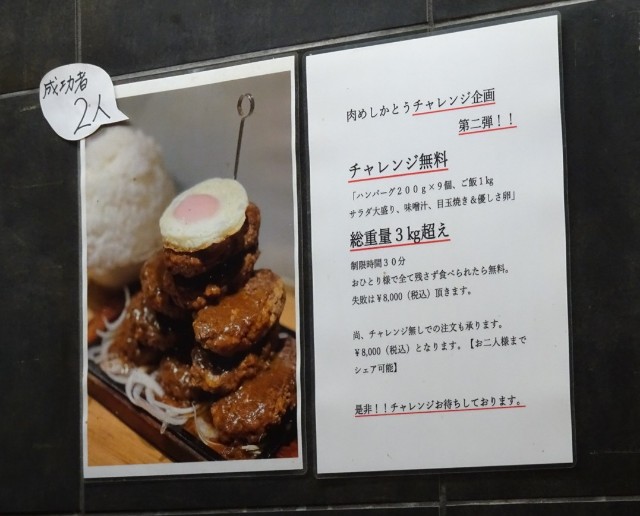 成功者
2人
肉めしかとうチャレンジ企画
第二弾！！
チャレンジ無料
「ハンバーグ２００ｇ×９個、ご飯１kg
サラダ大盛り、味噌汁、目玉焼き＆優しさ卵」
総重量３kg超え
制限時間３０分
おひとり様で全て残さず食べられたら無料。
失敗は￥8,000（税込）頂きます。
尚、チャレンジ無しでの注文も承ります。
￥8,000（税込）となります。【お二人様まで
シェア可能】
是非！！チャレンジお待ちしております。